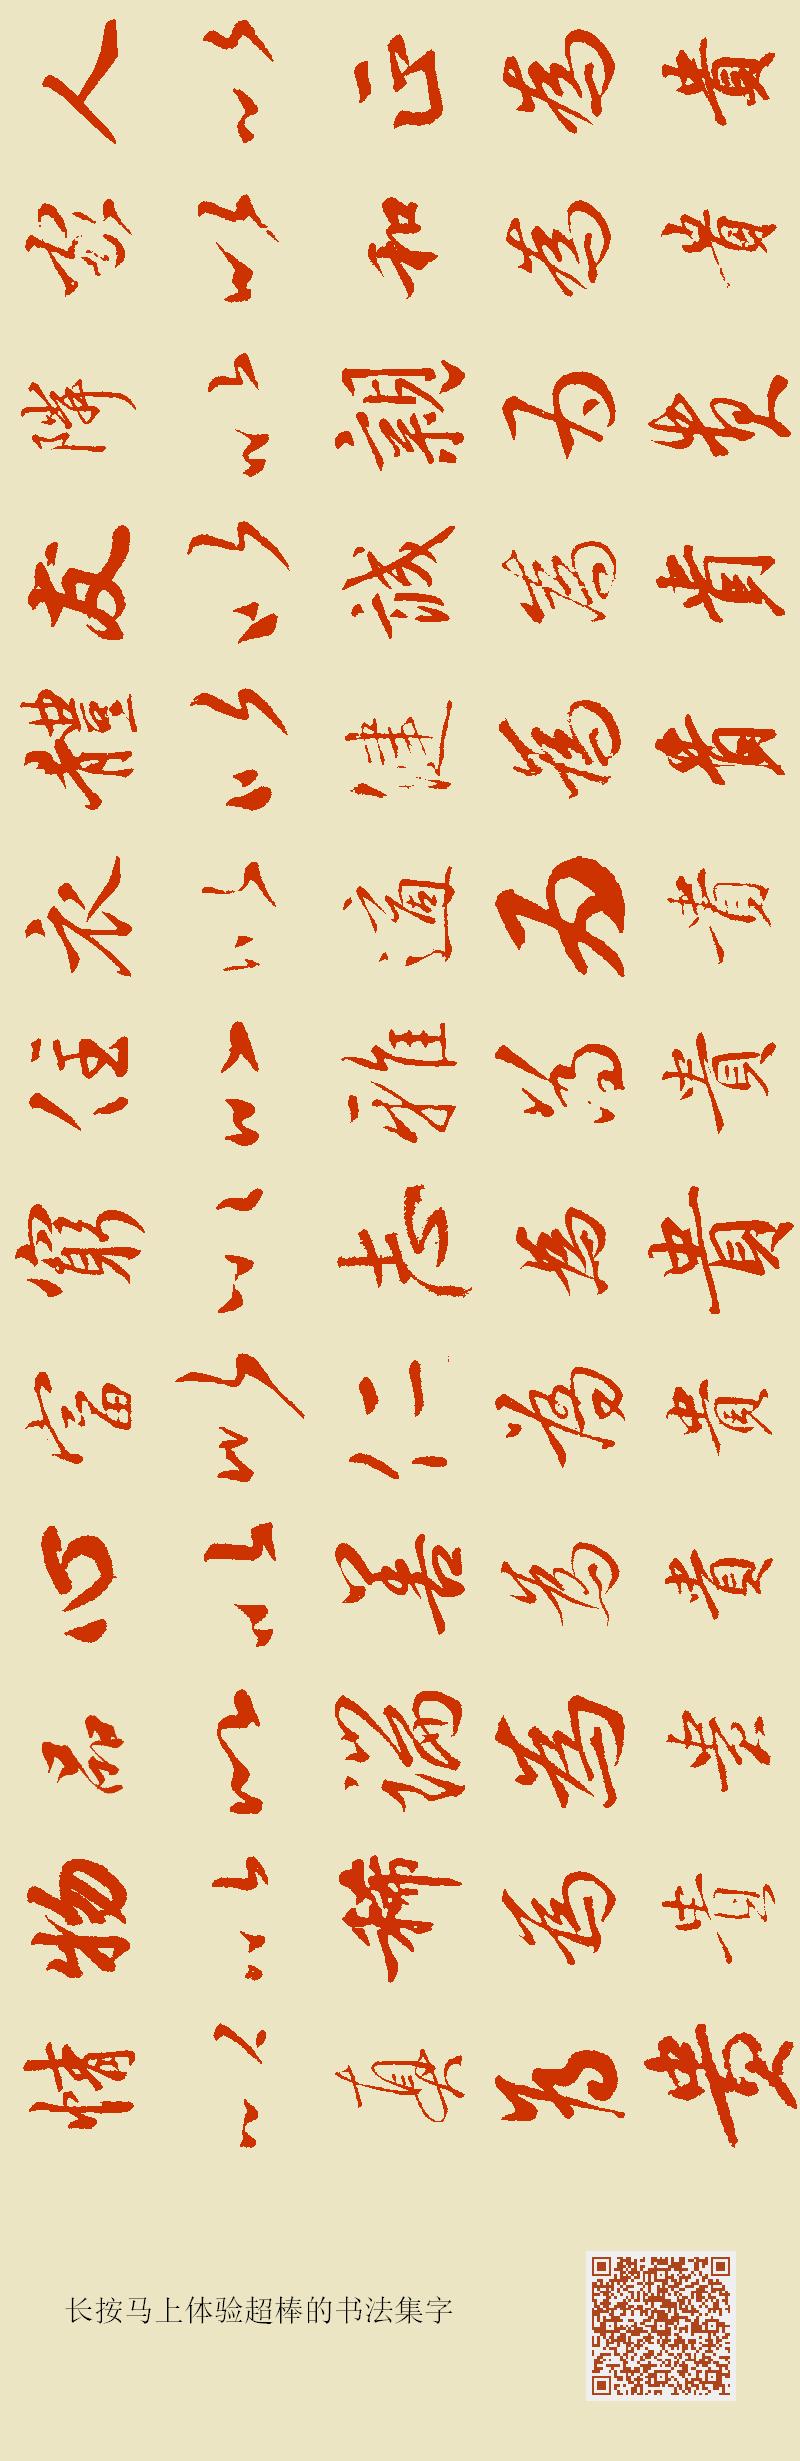 人以正為貴
以和為貴
隣以親為貴
友以誠為貴
體以健為貴
衣以適為貴
住以雅為貴
窮以志為貴
富以仁為貴
心以善為貴
品以端為貴
物以稀為貴
情以真為貴
长按马上体验超棒的书法集字